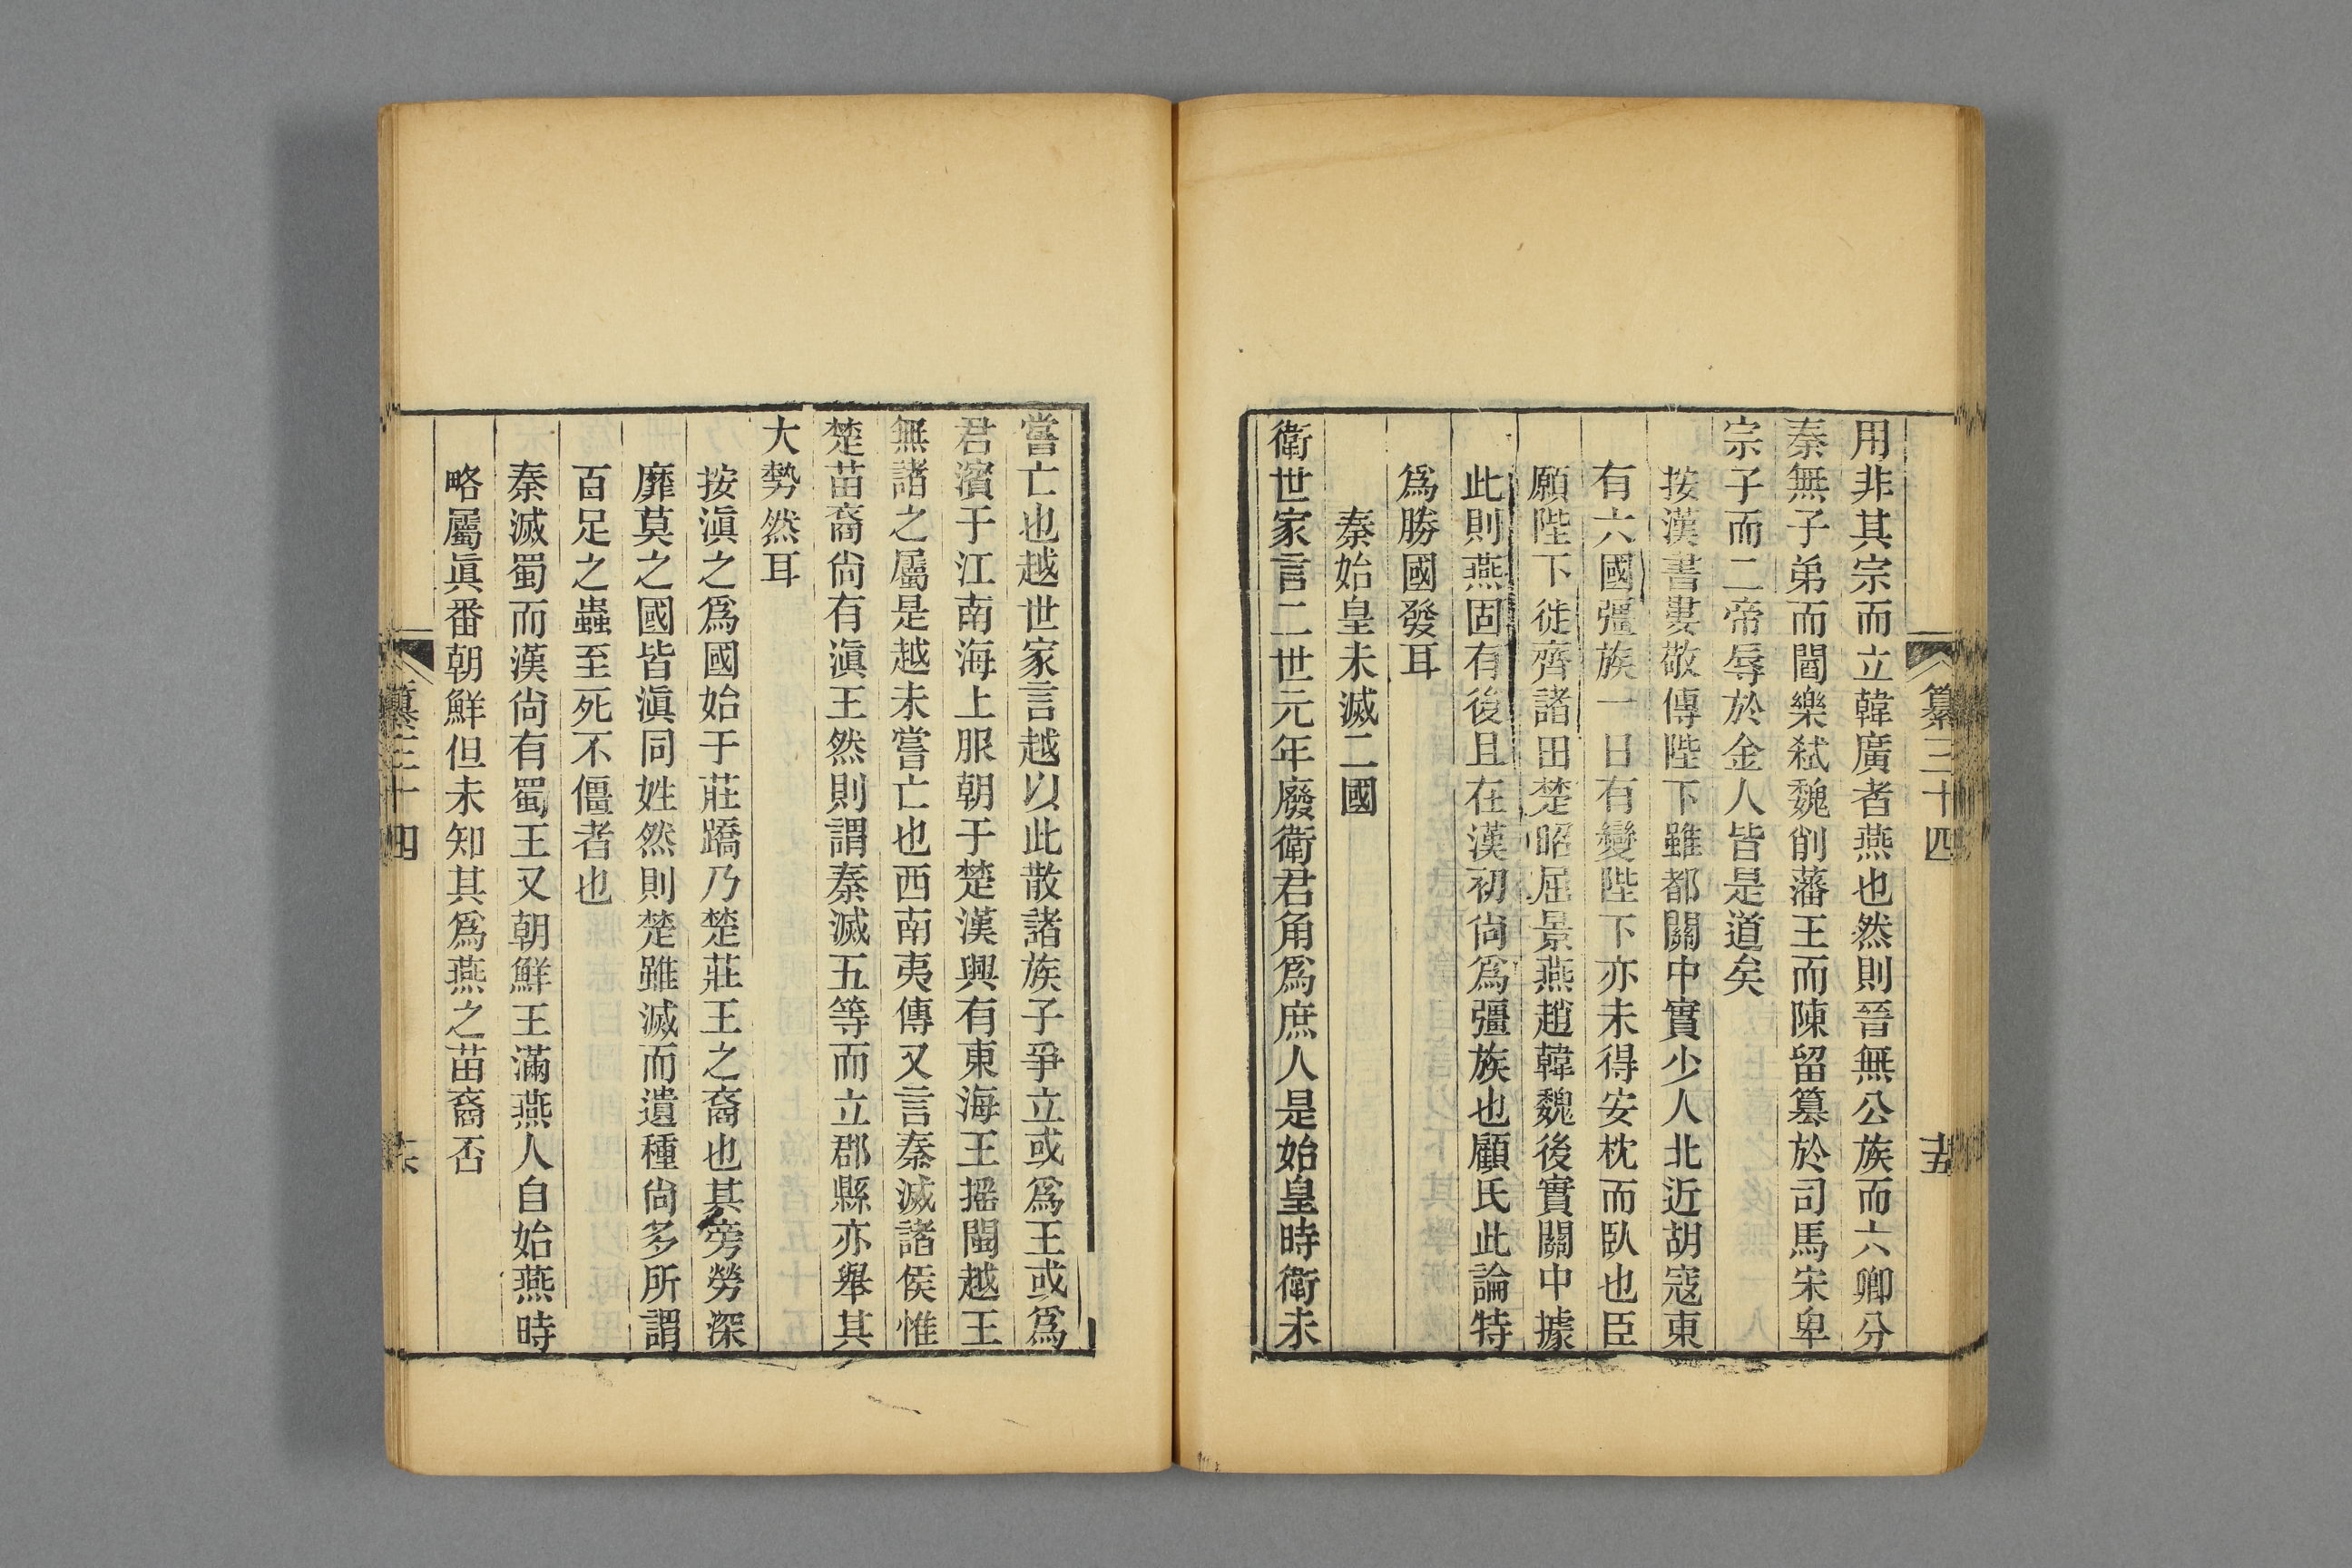 纂三十四
十五
用非其宗而立韓廣者燕也然則晉無公族而六卿分
秦無子弟而閻樂弒魏削藩王而陳留篡於司馬宋卑
宗子而二帝辱於金人皆是道矣
按漢書婁敬傳陛下雖都關中實少人北近胡寇東
有六國彊族一日有變陛下亦未得安枕而臥也臣
願陛下徙齊諸田楚昭屈景燕趙韓魏後實關中據
此則燕固有後且在漢初尙爲彊族也顧氏此論特
爲勝國發耳
秦始皇未滅二國
衛世家言二世元年廢衛君角爲庶人是始皇時衛未
嘗亡也越世家言越以此散諸族子爭立或爲王或爲
君濱于江南海上服朝于楚漢興有東海王搖閩越王
無諸之屬是越未嘗亡也西南夷傳又言秦滅諸侯惟
楚苗裔尙有滇王然則謂秦滅五等而立郡縣亦舉其
大勢然耳
按滇之爲國始于莊蹻乃楚莊王之裔也其旁勞深
靡莫之國皆滇同姓然則楚雖滅而遺種尙多所謂
百足之蟲至死不僵者也
秦滅蜀而漢尙有蜀王又朝鮮王滿燕人自始燕時
略屬眞番朝鮮但未知其爲燕之苗裔否
纂三十四
十六